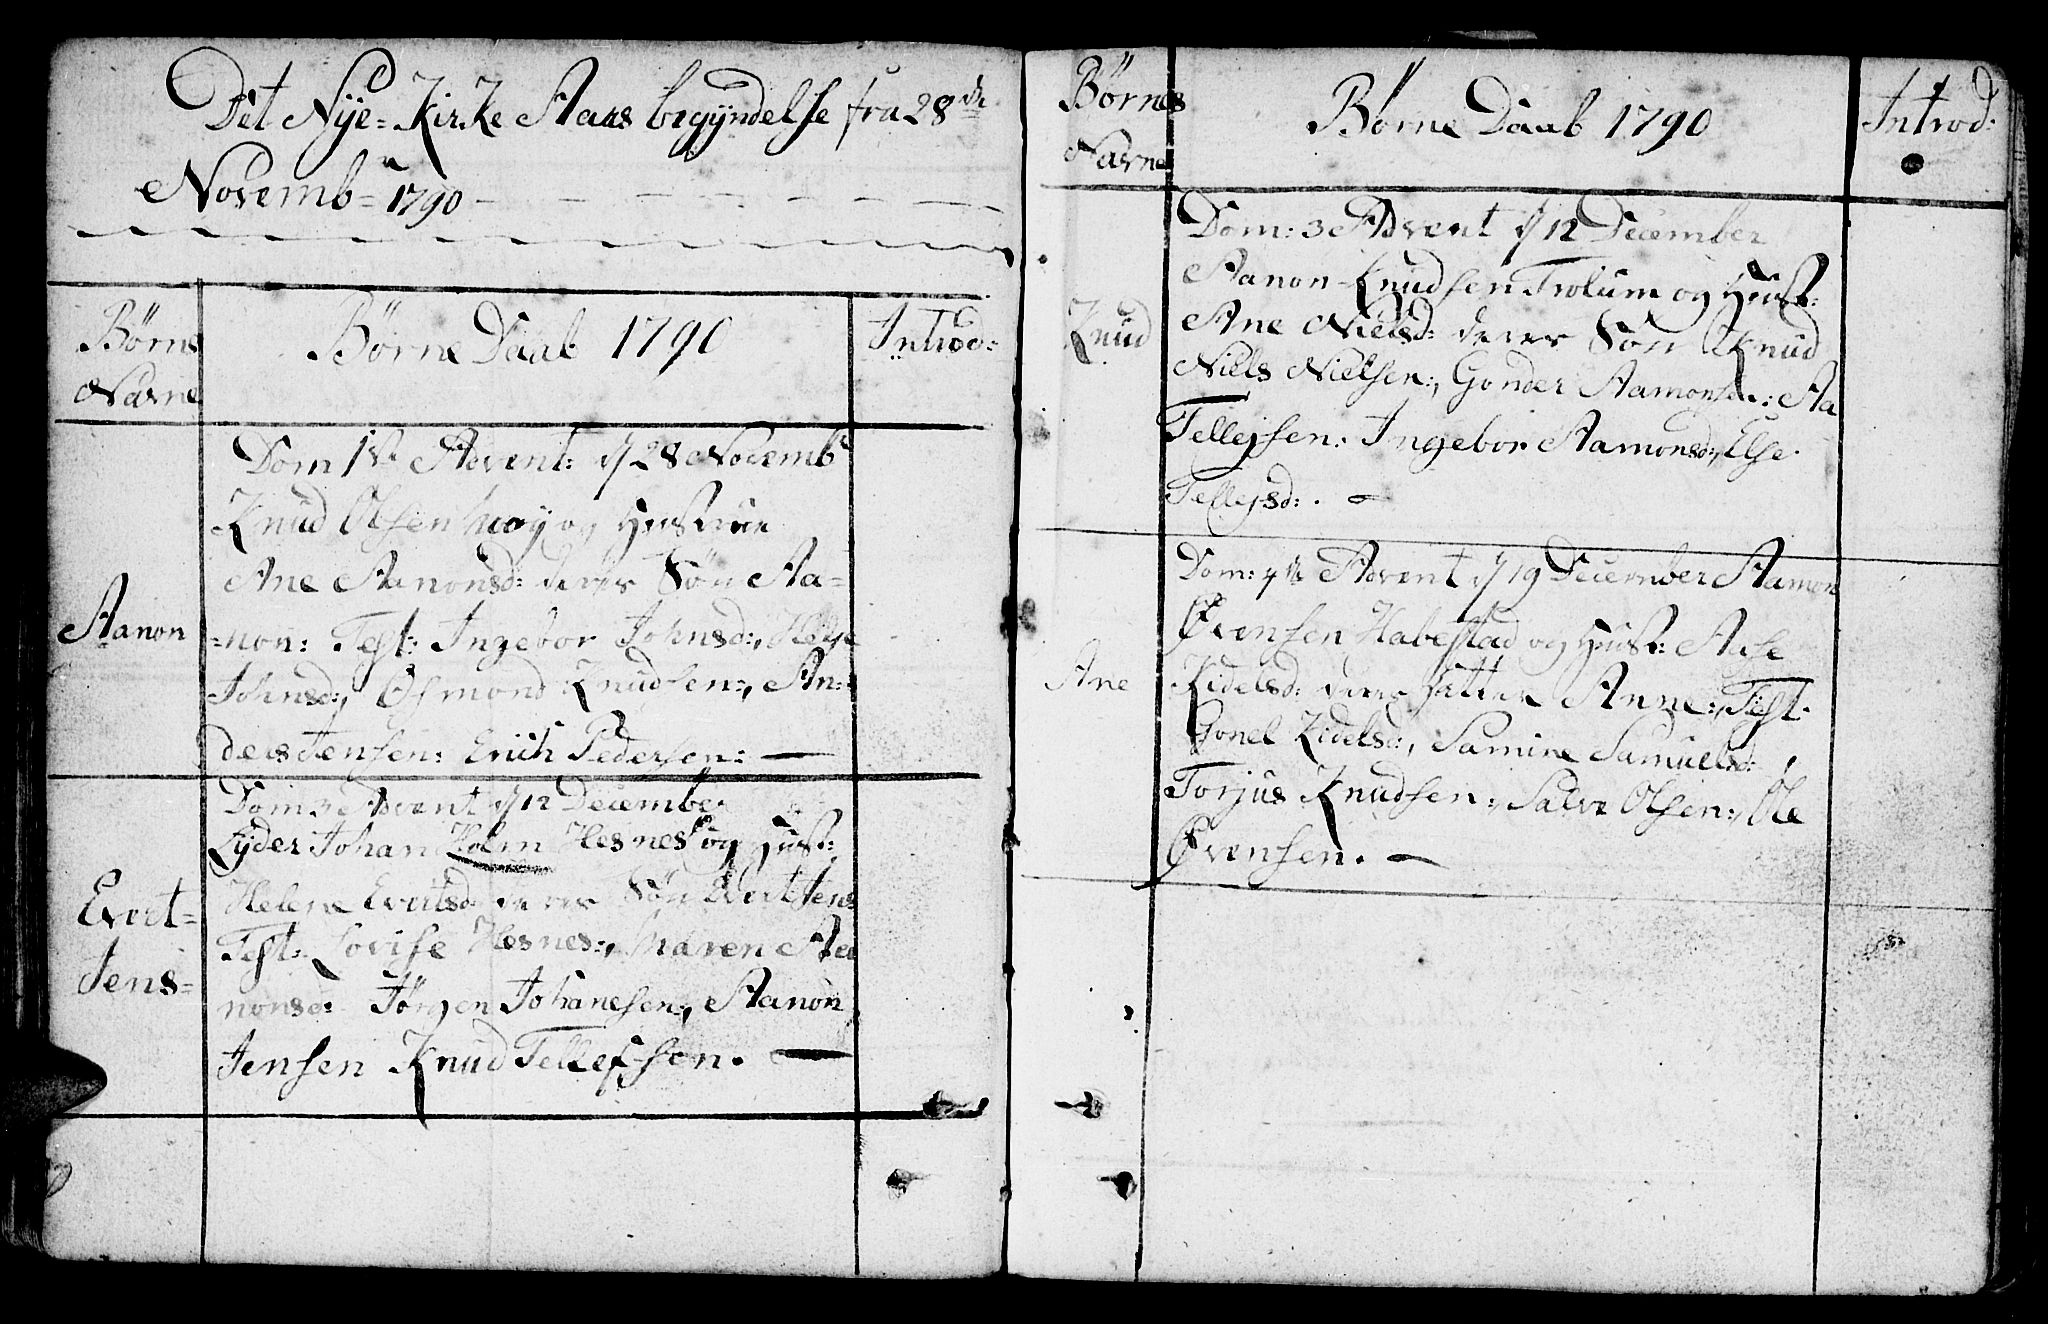 Det Nye=Kirke Aars begyndelse fra 28de
Novemb= 1790
Børns
Navne
Børne Daab 1790
Introd:
Aanon
Dom 1ste Advent: d/ 28 Novemb
Knud Olsen og Hustrue
Ane Aanonsd: deres Søn Aa=
=non: Test: Ingebor Johnsd:,
Johnsd:, Osmond Knudsen:, An=
ders Jensen: Erich Pedersen:
Evert=
Jens=
Dom 3 Advent d/ 12 December
Lyder Johan Holm Hesnes og Hust:
Helene Evertsd: deres Søn Evert Jens
Test: Lovise Hesnes:, Maren Aa
nonsd: Jørgen Johanesen:, Aanon
Jensen Knud Tellefsen.
Børnes
Navne
Børne Daab 1790
Introd:
Knud
Dom: 3 Advent d/ 12 December
Aanon Knudsen Trolum og Hust:
Ane Nielsd: deres Søn Knud
Niels Nielsen:, Gonder Aamonsen: Aa
Tellefsen: Ingebor Aamonsd:, Else
Tellefsd:.
Ane
Dom: 4de Advent d/ 19 December Aamon
Øvensen Habestad og Hust: Aase
Kidelsd: deres Datter Anne:, Test:
Gonel Kidelsd:, Samine Samuelsd:,
Torjus Knudsen:, Salve Olsen:, Ole
Øvensen.